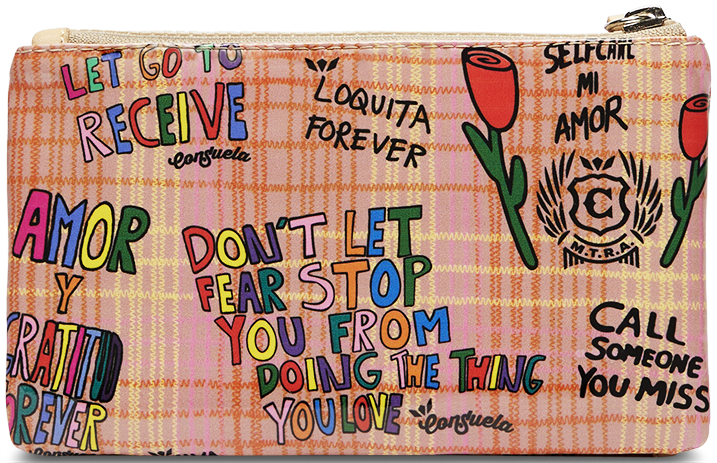 LET GO TO
RECEIVE
Consuela
LOQUITA
FOREVER
SELFCARE
MI
AMOR
C
M.T.R.A.
AMOR
Y
GRATITUD
FOREVER
DON'T LET
FEAR STOP
YOU FROM
DOING THE THING
YOU LOVE
Consuela
CALL
SOMEONE
YOU MISS